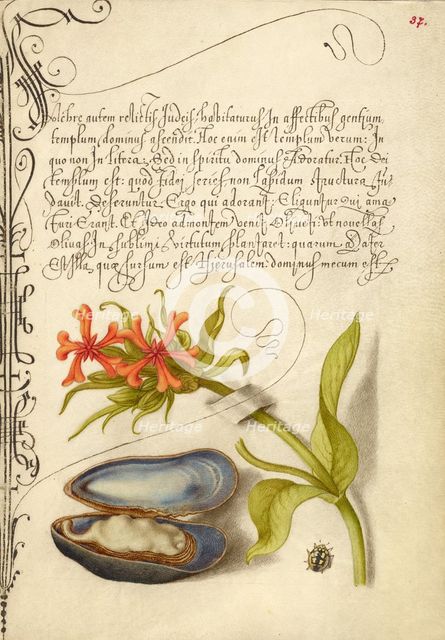 37.
Solebre autem relictis Judeis, habitaturus In affectibus gentium
templum, dominus ascendit. Hoc enim est templum verum: In
quo non In litera, Sed in spiritu dominus Adoratur. Hoc dei
templum est: quod fidei series non lapidum structura fun
davit. Deseruntur Ergo qui adorant: Eliguntur qui ama
turi Erant. Et Ideo ad montem venit Oliueti: ut nouellas
Oliuas In sublimi virtutum plantaret: quarum Mater
Est Illa, quæ sursum est Hierusalem: dominus mecum est
Heritage
Heritage
Heritage
Heritage
Heritage